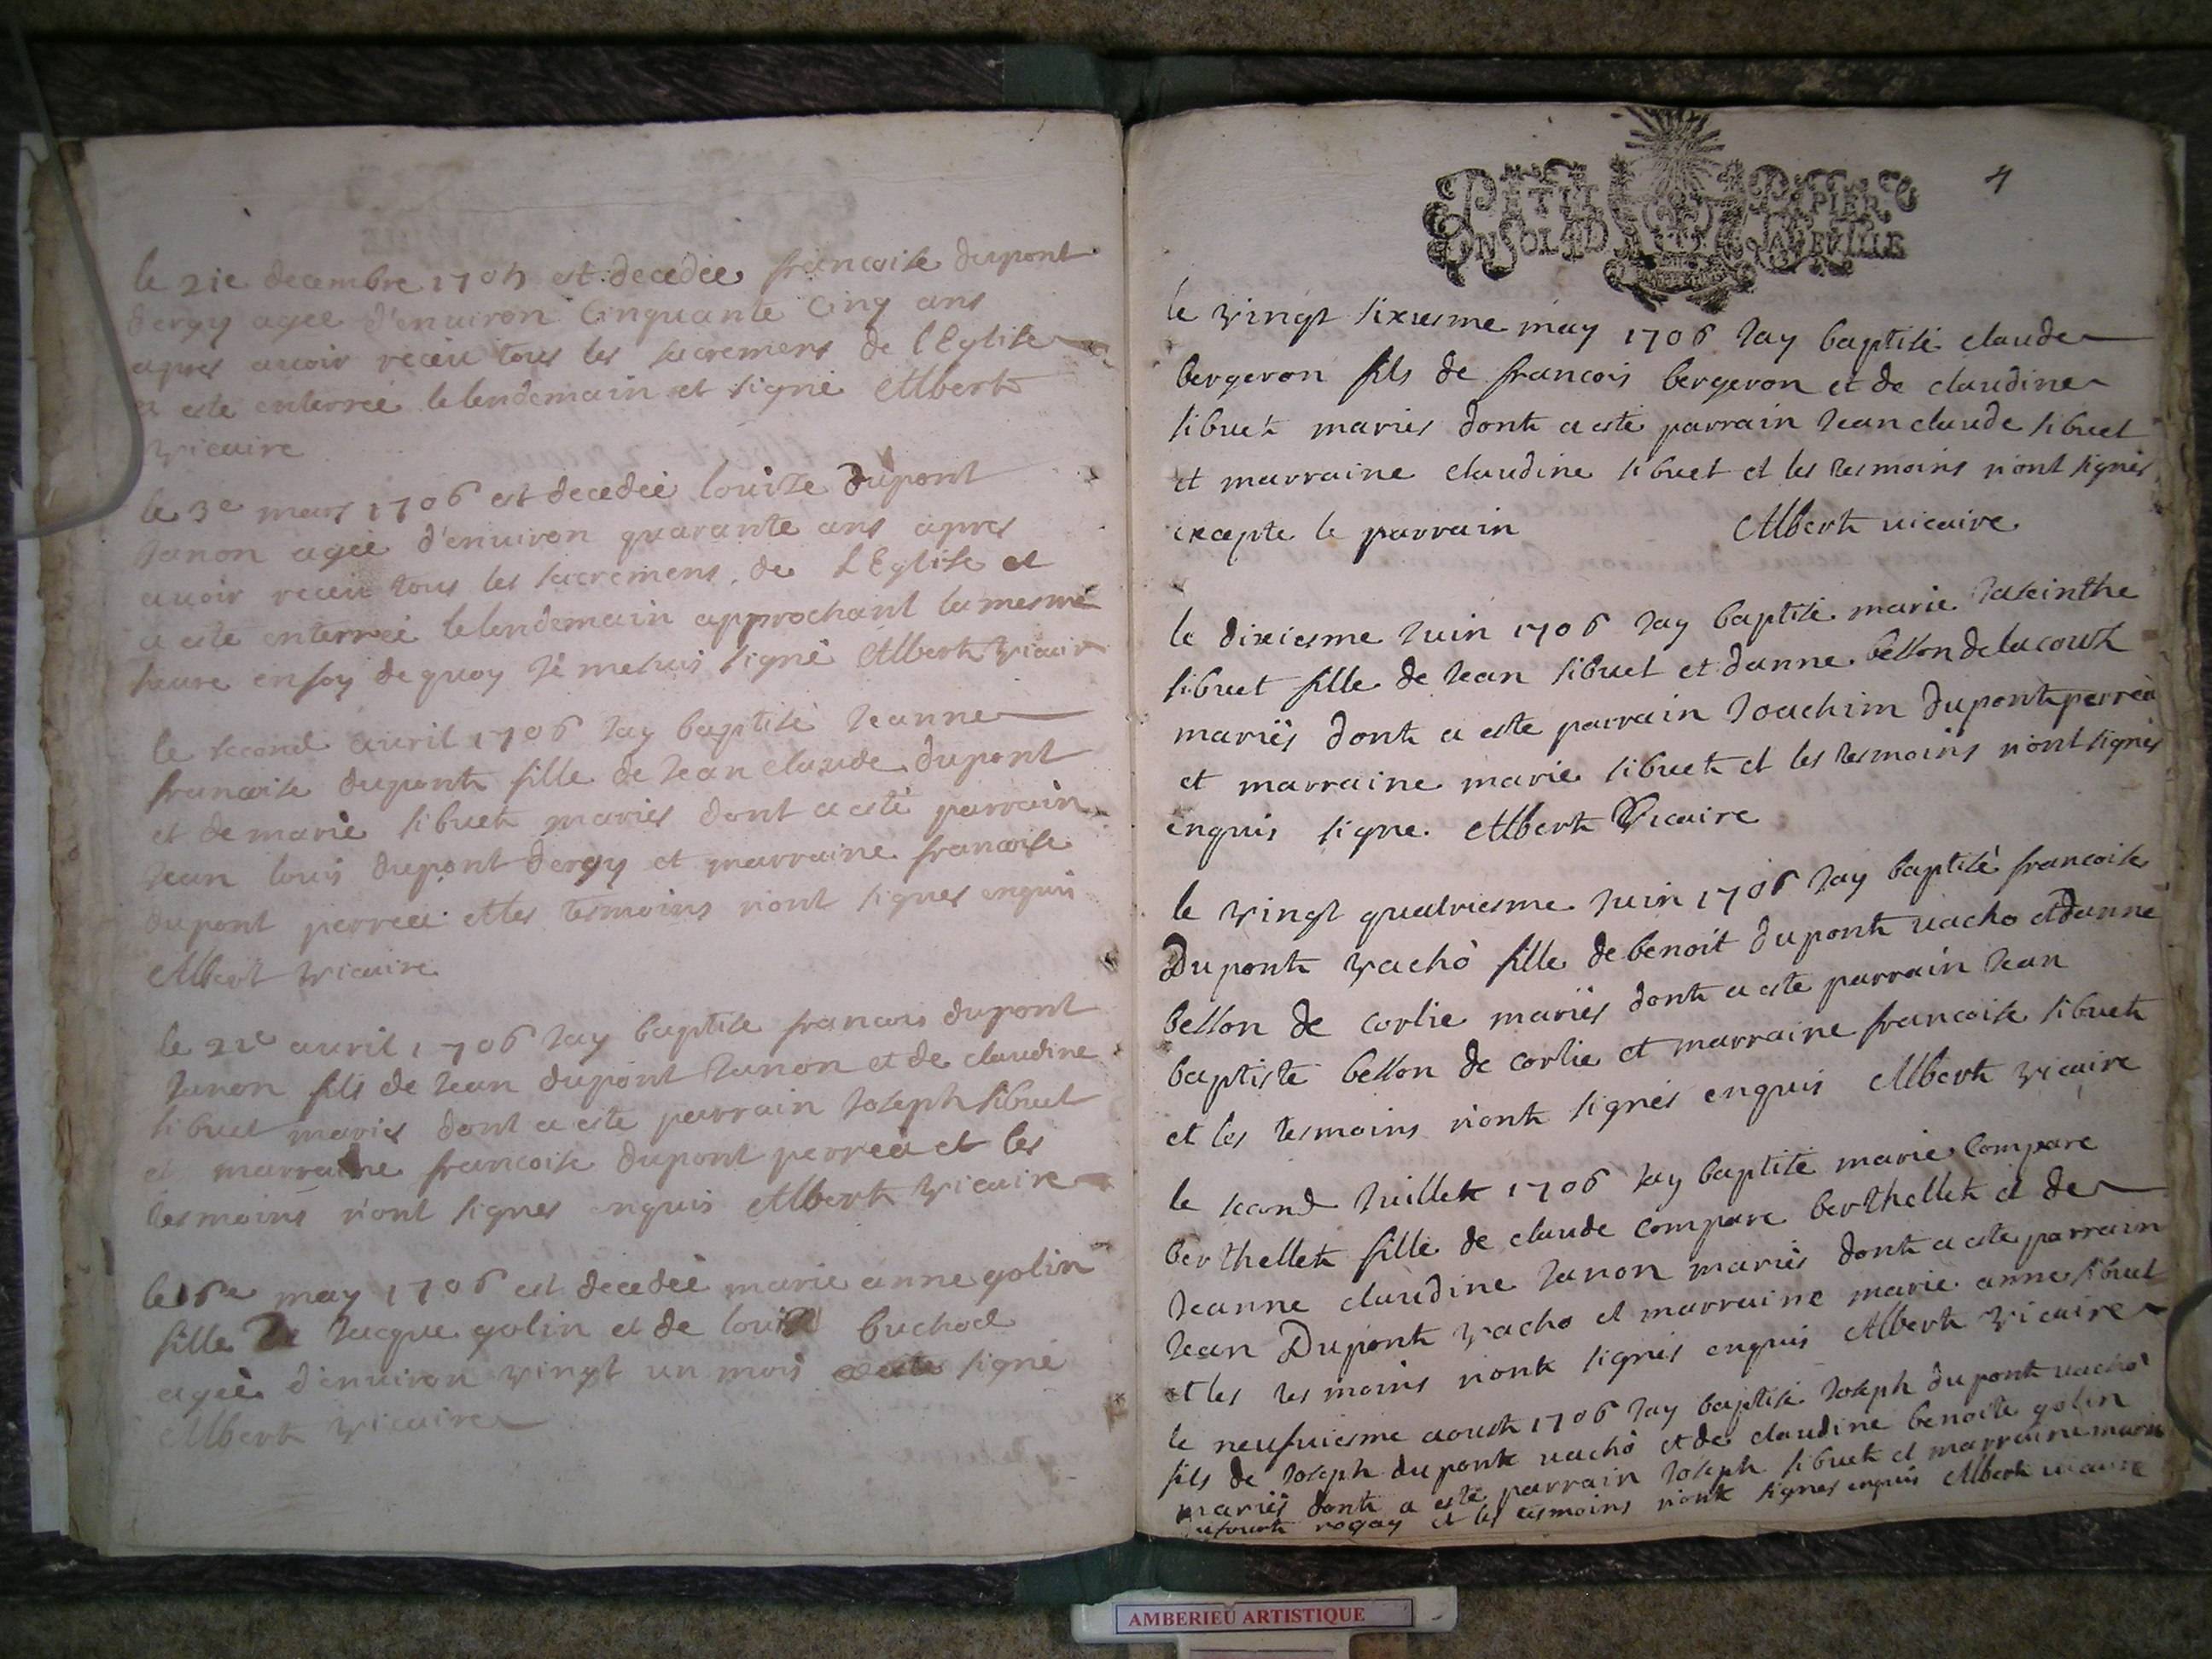 le 21e decembre 1705 est decedée francoise dupont
dergy agée d'enuiron Cinquante Cinq ans
apres auoir receu tous les sacremens de l'Eglise
a este enterreé le lendemain et signé Albert
vicaire
le 3e mars 1706 est decedeé louise dupont
Janon ageé d'enuiron quarante ans apres
auoir receu tous les sacremens de l'Eglise et
a este enterreé lelendemain approchant la mesme
heure en foy de quoy Je me suis signé Albert vicaire
le second auril 1706 Jay baptisé Jeanne
francoise dupont fille de Jean claude dupont
et de marie sibuet mariés dont a esté parrain
Jean louis dupont dergy et marraine francoise
dupont perrea et les tesmoins n'ont signes enquis
Albert vicaire
le 21e auril 1706 Jay baptisé francois dupont
Janon fils de Jean dupont Janon et de claudine
sibuet mariés dont a este parrain Joseph sibuet
et marraine francoise dupont perrea et les
tesmoins n'ont signes enquis Albert vicaire
le 16e may 1706 est decedeé marie anne golin
fille de Jacque golin et de louise buchod
ageé d'enuiron vingt un mois signé
Albert vicaire
PETIT PAPIER
4
le vingt sixiesme may 1706 Jay baptisé claude
bergeron fils de francois bergeron et de claudine
sibuet mariés dont a esté parrain Jean claude sibuet
et marraine claudine sibuet et les tesmoins n'ont signés
excepte le parrain Albert uicaire
le dixiesme Juin 1706 Jay baptisé marie Jaseinthe
sibuet fille de Jean sibuet et danne bellon delacoust
mariés dont a este parrain Joachim dupont perrea
et marraine marie sibuet et les tesmoins n'ont signés
enquis signe Albert Vicaire
le vingt quatriesme Juin 1706 Jay baptisé francoise
Dupont vachò fille de benoit dupont uacho et danne
bellon de corlie mariés dont a este parrain Jean
baptiste bellon de corlie et marraine francoise sibuet
et les tesmoins n'ont signés enquis Albert vicaire
le second Juillet 1706 Jay baptisé marie Compare
berthellet fille de claude compare berthellet et de
Jeanne claudine Janon mariés dont a este parrain
Jean Dupont vacho et marraine marie anne sibuet
et les tesmoins n'ont signés enquis Albert vicaire
le neufuiesme aoust 1706 Jay baptisé Joseph dupont uachò
fils de Joseph dupont uachò et de claudine benoite golin
mariés dont a este parrain Joseph sibuet et marraine marie
rogay et les tesmoins n'ont signes enquis Albert uicaire
AMBERIEU ARTISTIQUE